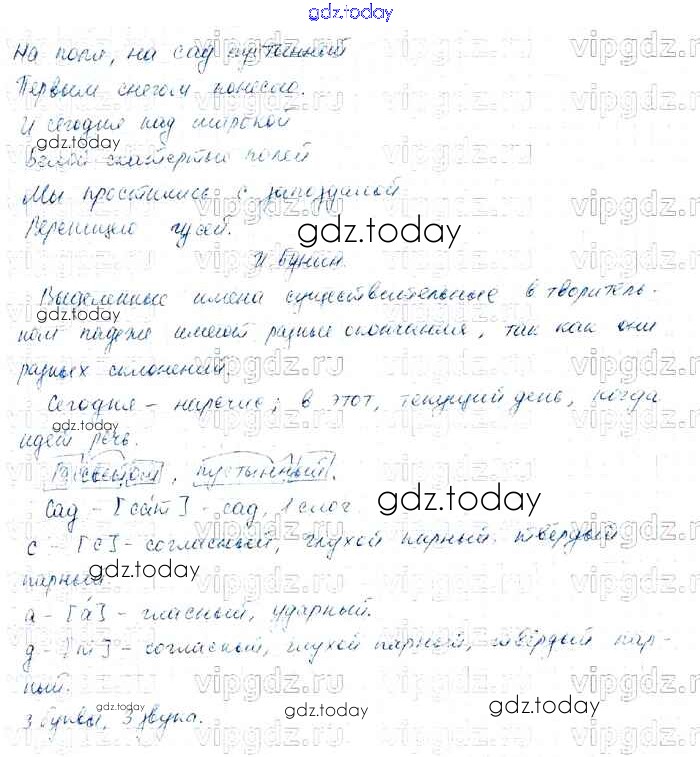 gdz.today
На поля, на сад пустынный
Первым снегом понесло.
И сегодня над широкой
gdz.today
Белой скатертью полей
Мы простились с запоздалой
Вереницею гусей.
gdz.today
И. Бунин.
Выделенные имена существительные в творитель-
ном падеже имеют разные окончания, так как они
gdz.today
разных склонений.
Сегодня – наречие; в этот, текущий день, когда
идёт речь.
gdz.today
пустынный.
Сад – [са́т] – сад, 1 слог.
gdz.today
с – [с] – согласный, глухой парный, твёрдый
парный.
gdz.today
а – [а́] – гласный, ударный.
д – [т] – согласный, глухой парный, твёрдый пар-
ный.
gdz.today
gdz.today
gdz.today
3 буквы, 3 звука.
vipgdz.ru